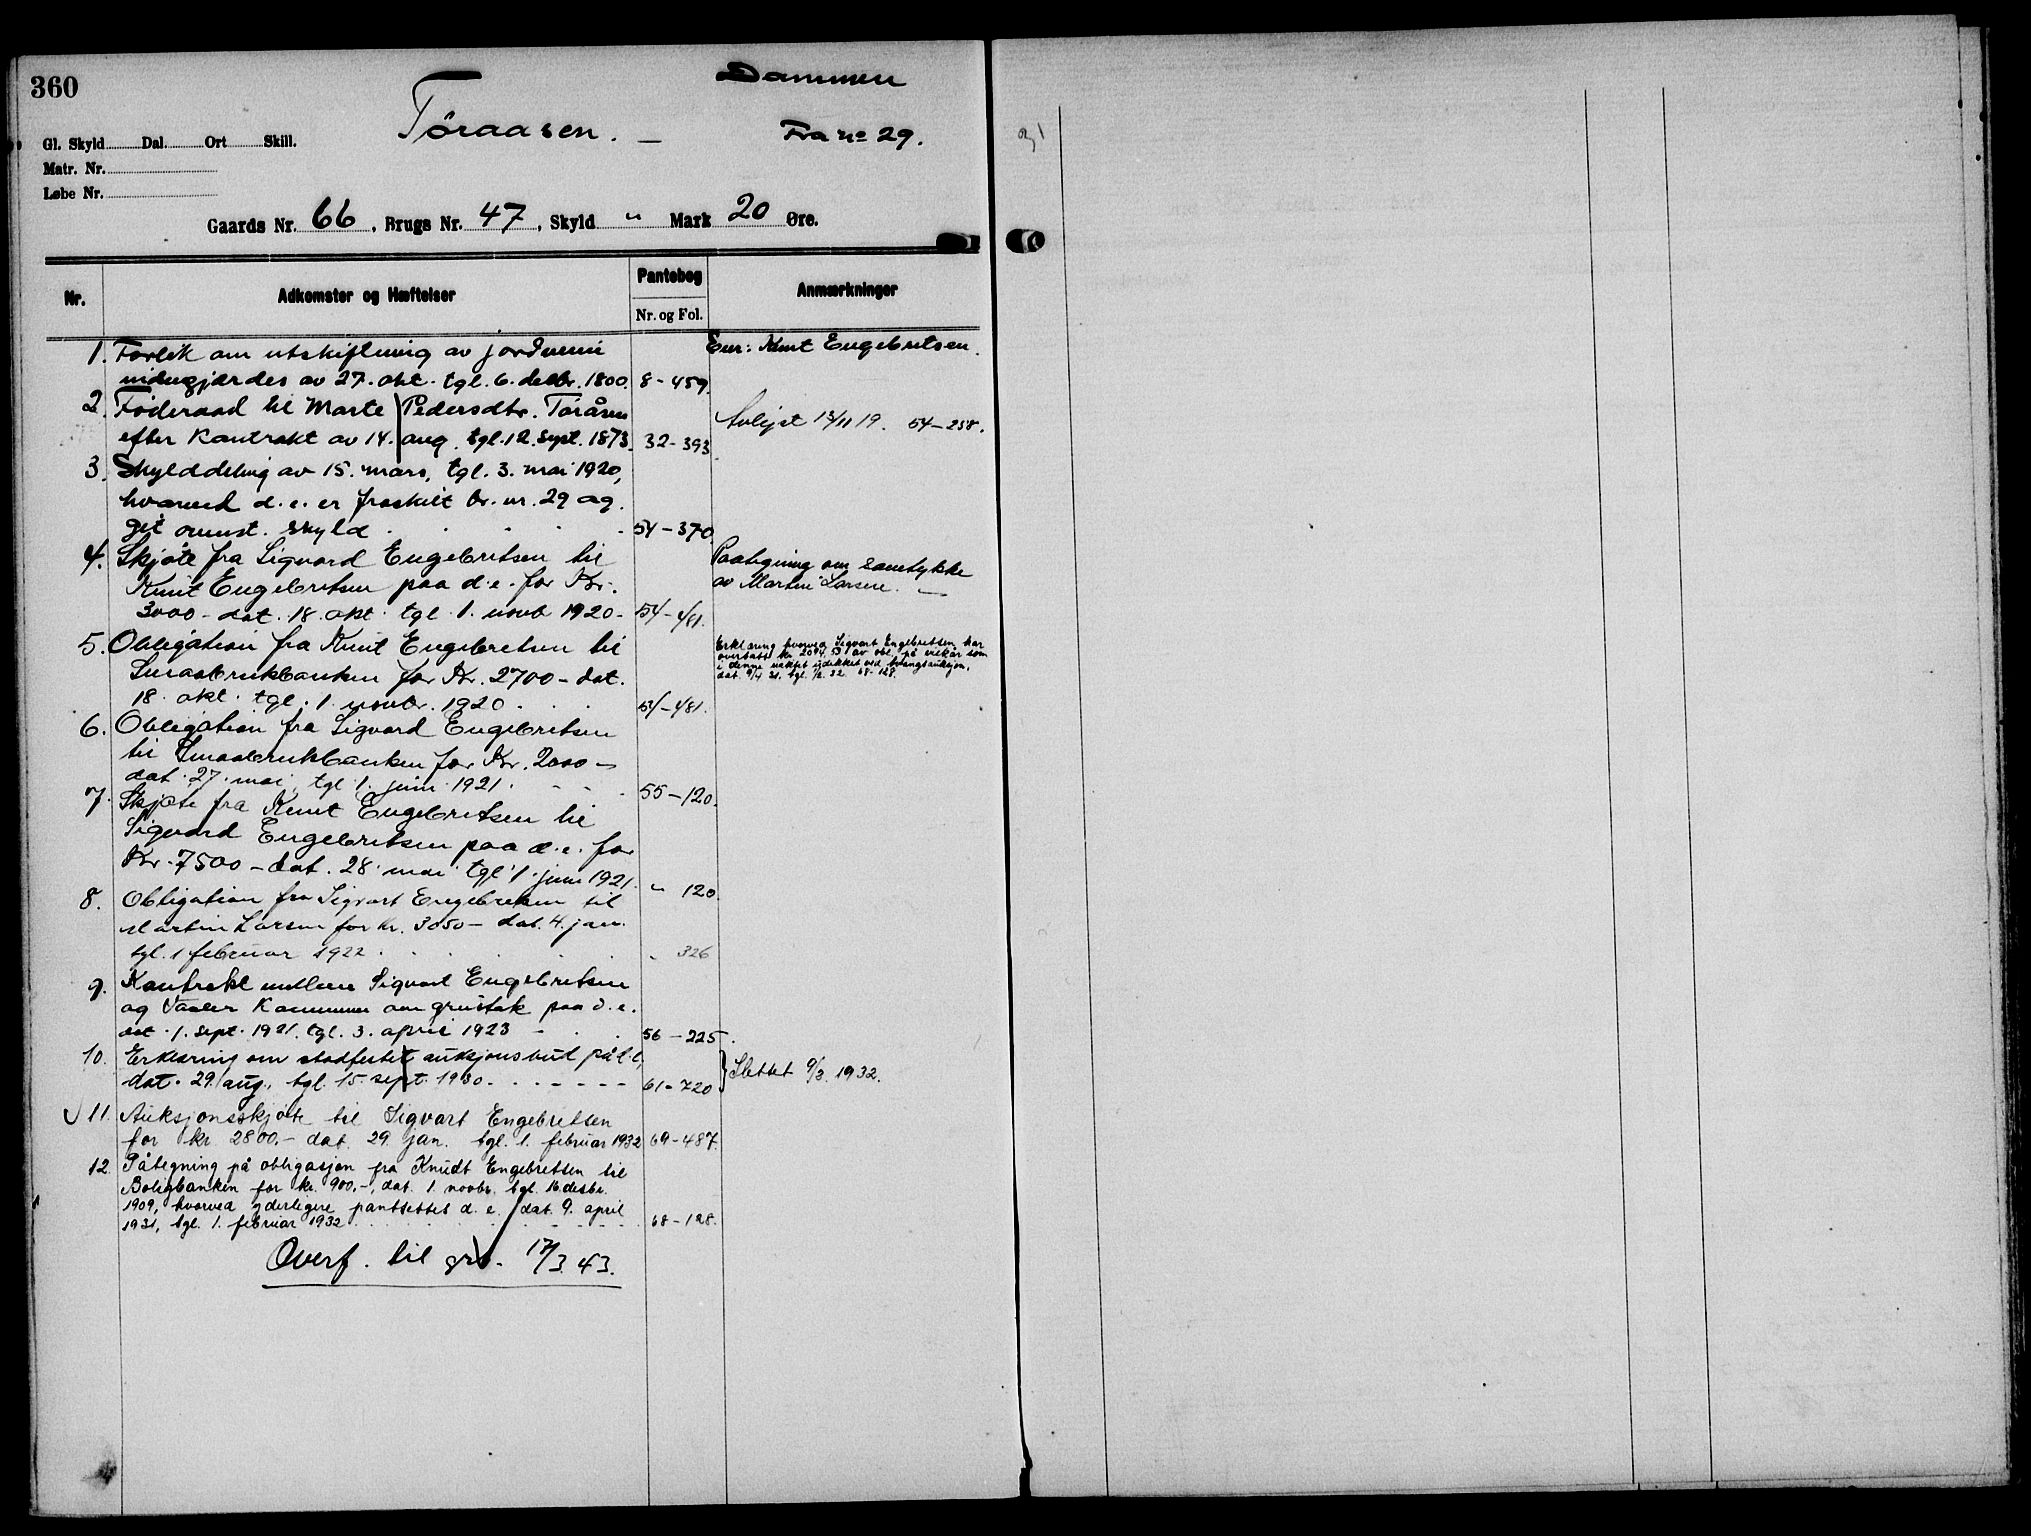 360
Dammen
Tøraasen. —
Fra no 29.
Gl. Skyld Dal. Ort Skill.
Matr. Nr.
Løbe Nr.
Gaards Nr. 66, Brugs Nr. 47, Skyld " Mark 20 Øre.
Nr.
Adkomster og Hæftelser
Pantebog
Nr. og Fol.
Anmærkninger
1. Forlik om utskiftning av jordveien
av 27. okt. tgl. 6. desbr. 1800. 8-459.
Eier: Knut Engebretsen.
2. Føderaad til Marte Pedersdtr. Toråsen
efter Kontrakt av 14. aug. tgl. 12. sept. 1873. 32-393
Avlyst 13/11 19. 54-258.
3. Skylddeling av 15. mars, tgl. 3. mai 1920,
hvorved d.e. er fraskilt br. nr. 29 og
git ovenst. skyld 54-370.
4. Skjøte fra Sigvard Engebretsen til
Knut Engebretsen paa d.e. for Kr.
3000- dat. 18. okt. tgl. 1. novb 1920- 54-481.
Paategning om samtykke
av Martin Larsen. —
5. Obligation fra Knut Engebretsen til
Smaabrukbanken for Kr. 2700- dat.
18. okt. tgl. 1. novbr. 1920. 54-481.
Erklæring hvorved Sigvart Engebretsen har
overtatt kr. 2094.53 av obl. på vilkår som
i denne nævnt udekket ved tvangsauksjon,
dat. 9/4 31. tgl. 1/2. 32 68-128.
6. Obligation fra Sigvard Engebretsen
til Smaabrukbanken for Kr. 2000-
dat. 27. mai tgl. 1. juni 1921. 55-120.
7. Skjøte fra Knut Engebretsen til
Sigvard Engebretsen paa d.e. for
Kr. 7500- dat. 28. mai tgl. 1. juni 1921. " 120.
8. Obligation fra Sigvart Engebretsen til
Martin Larsen for kr. 3050- dat. 4. jan.
tgl. 1 februar 1922. " 326
9. Kontrakt mellem Sigvart Engebretsen
og Vaaler Kommune om grustak paa d.e.
dat. 1. sept. 1921. tgl. 3. april 1923 56-225.
10. Erklæring om stadfestet auksjonsbud på d.e.,
dat. 29. aug., tgl. 15. sept. 1930. 61-720
Slettet 9/3. 1932.
11. Auksjonsskjøte til Sigvart Engebretsen
for kr 2800.- dat. 29. jan. tgl. 1. februar 1932 69-487.
12. Påtegning på obligasjon fra Knudt Engebretsen til
Boligbanken for kr. 900.-, dat. 1. novbr. tgl. 16. desbr.
1909, hvorved yderligere pantsettes d.e. dat. 9. april
1931, tgl. 1. februar 1932 68-128.
Overf. til grb. 17/3. 43.
31